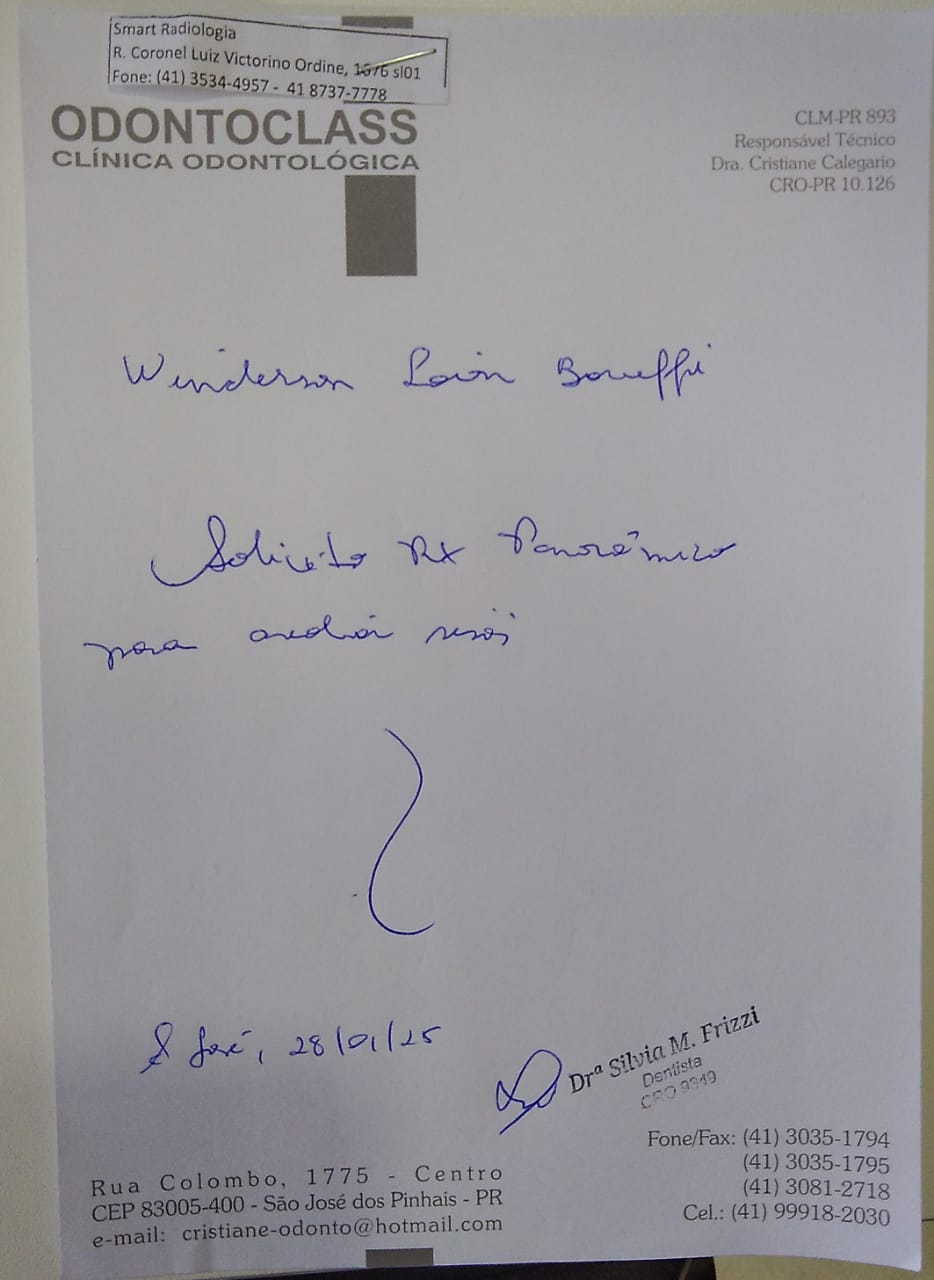 Smart Radiologia
R. Coronel Luiz Victorino Ordine, 1676 sl01
Fone: (41) 3534-4957 - 41 8737-7778
ODONTOCLASS
CLÍNICA ODONTOLÓGICA
CLM-PR 893
Responsável Técnico
Dra. Cristiane Calegario
CRO-PR 10.126
Winderson
Solicito RX Panorâmico
para avaliar sisos
S José, 28/01/25
Drª Silvia M. Frizzi
Dentista
CRO 9349
Fone/Fax: (41) 3035-1794
(41) 3035-1795
(41) 3081-2718
Cel.: (41) 99918-2030
Rua Colombo, 1775 - Centro
CEP 83005-400 - São José dos Pinhais - PR
e-mail: cristiane-odonto@hotmail.com